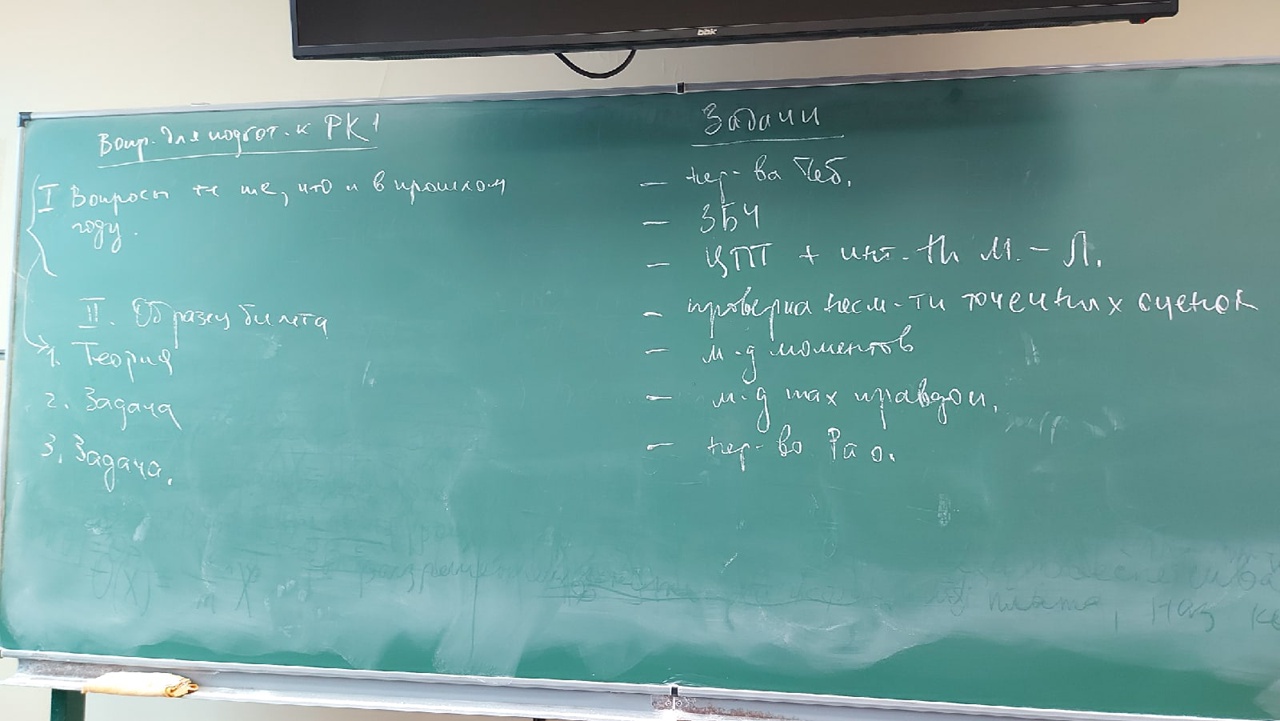 bbk
Вопр. для подгот. к РК1
I Вопросы те же, что и в прошлом
году.
II. Образец билета
1. Теория
2. Задача
3. Задача.
Задачи
— нер-ва Чеб.
— ЗБЧ
— ЦПТ + инт. th М.-Л.
— проверка несм-ти точечных оценок
— м-д моментов
— м-д max правдоп.
— нер-во Рао.